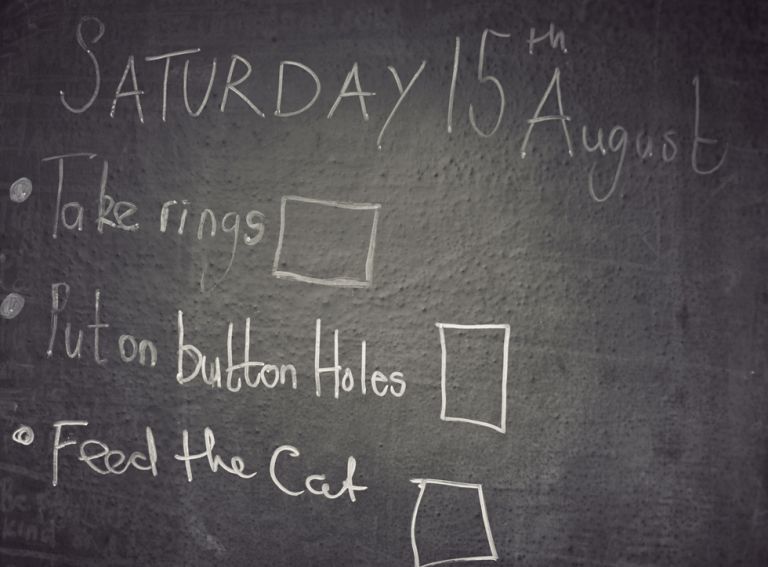 SATURDAY 15th August
• Take rings
• Put on button Holes
• Feed the Cat
kind